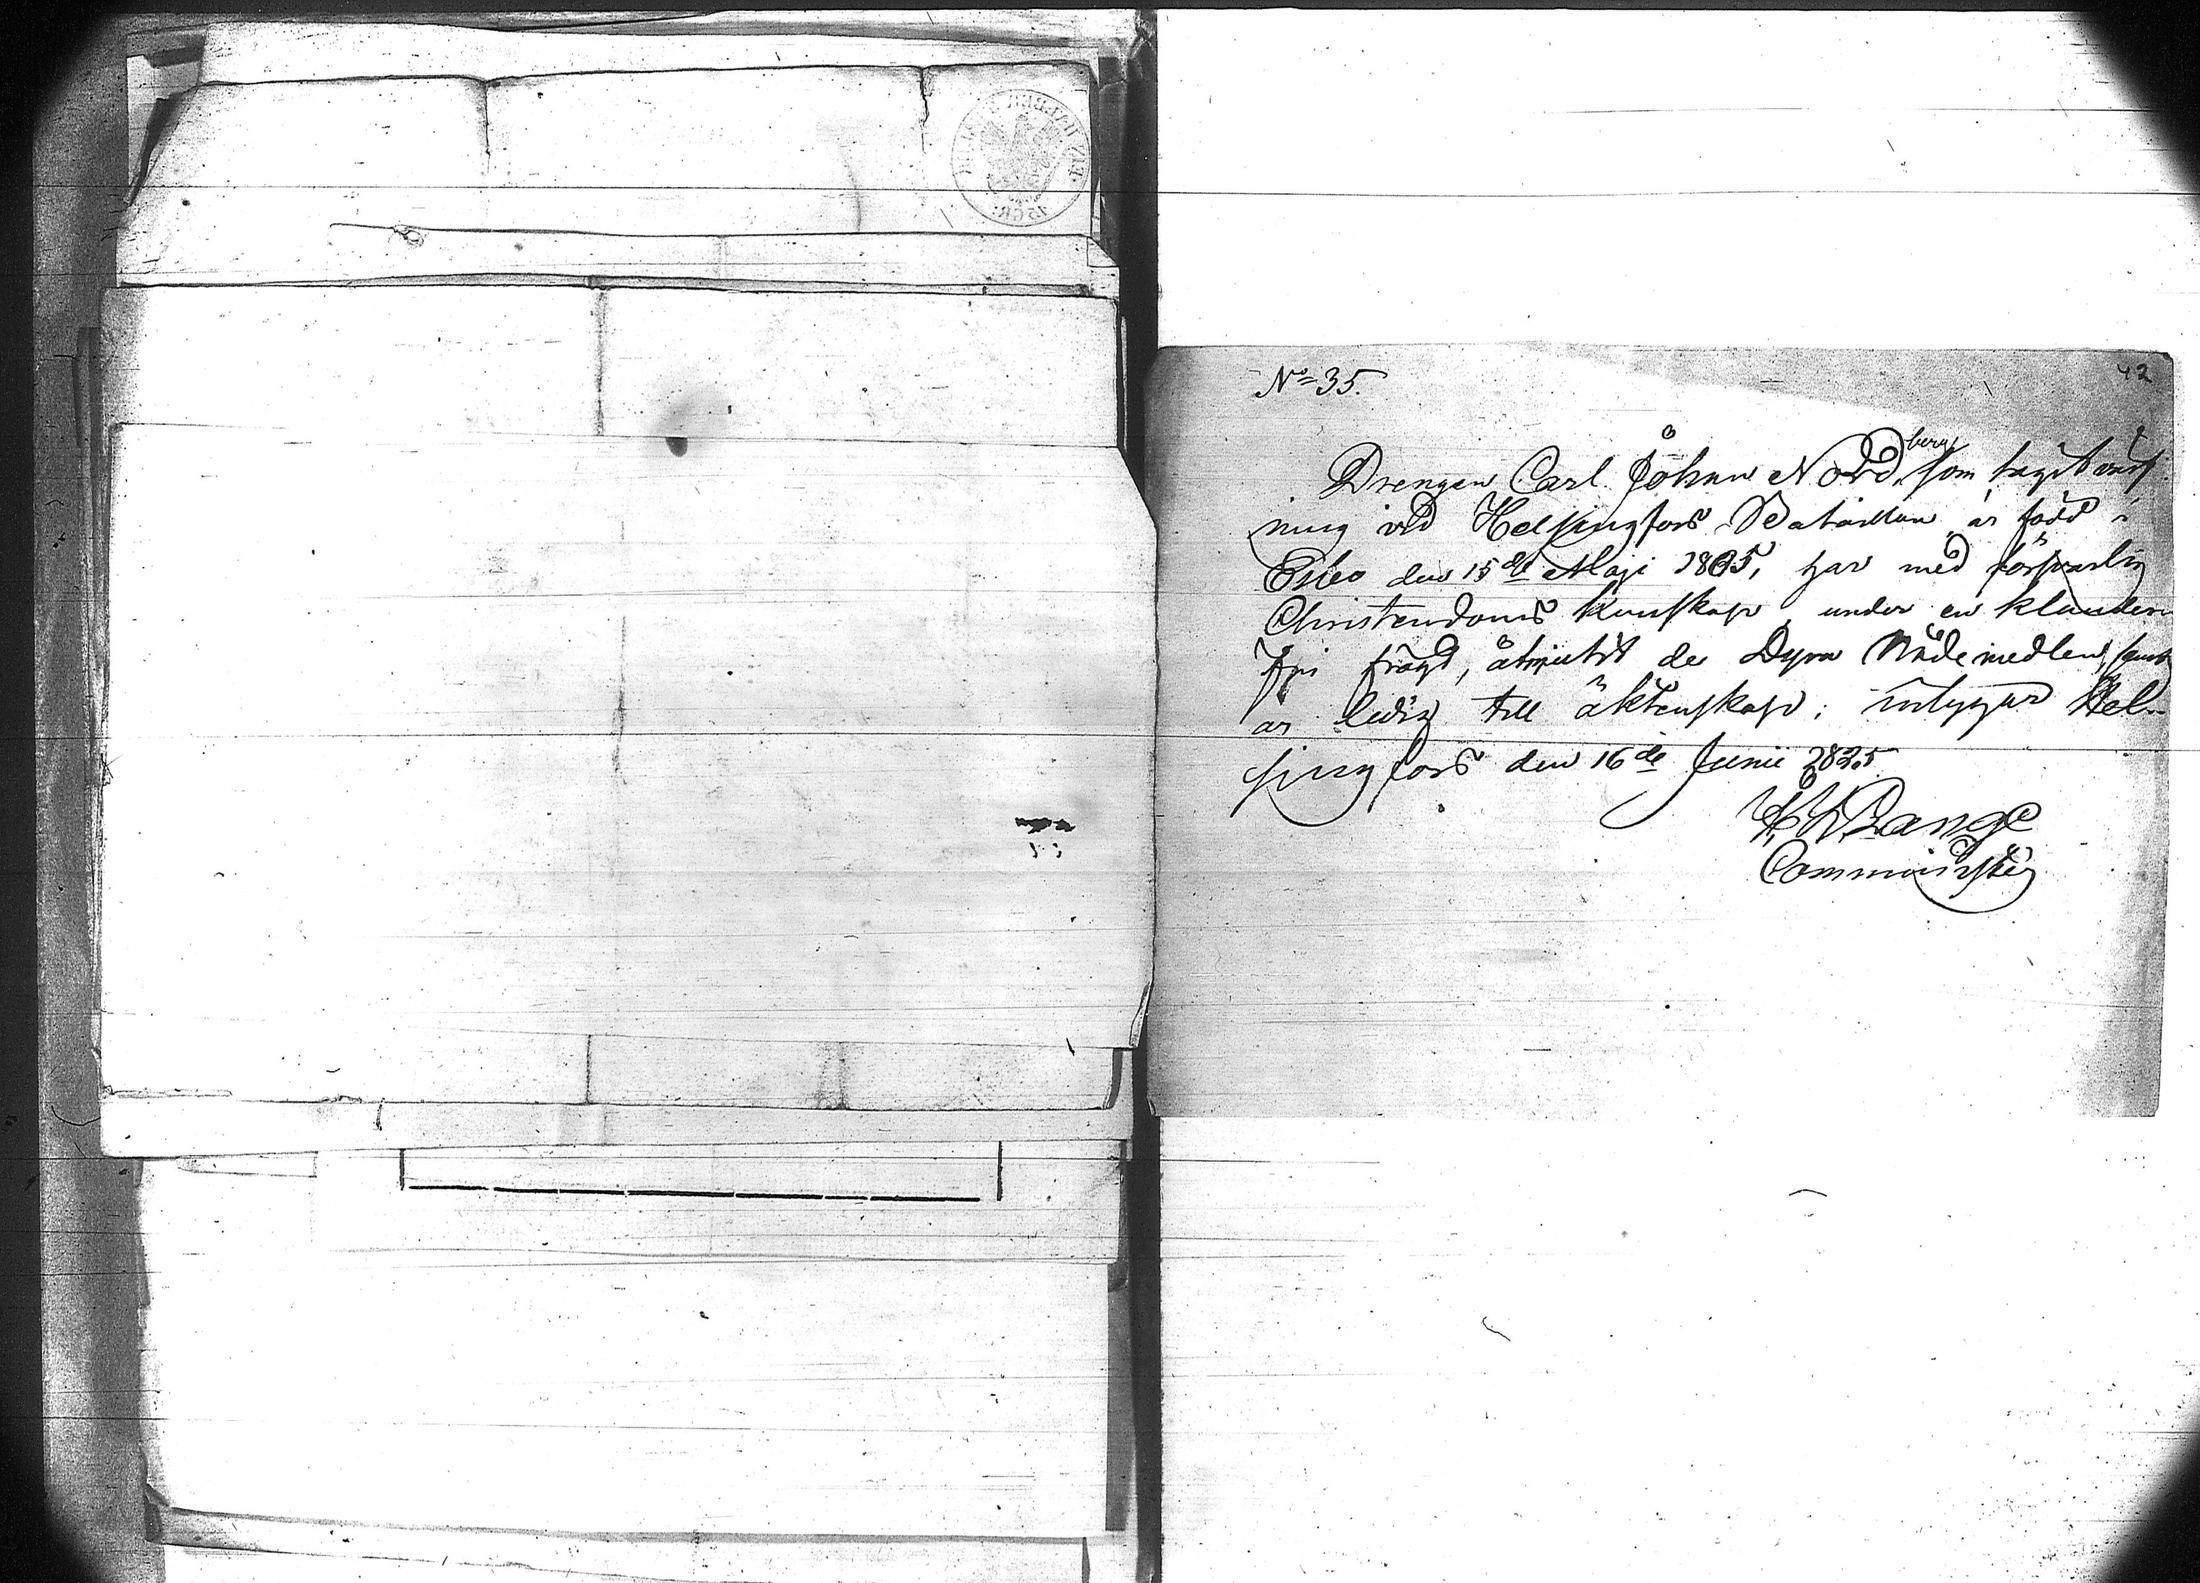 42
No 35.
Drengen Carl Johan Nordberg, som tagit värf
ning vid Helsingfors Bataillon är född i
Esbo den 15de Maji 1805, har med försvarlig
Christendoms kunskap, under en klander
fri frägd, åtnjutit de Dyra Nådemedlen, samt
är ledig till äktenskap; intygar Hel-
singfors den 16de Junii 1825
Bange